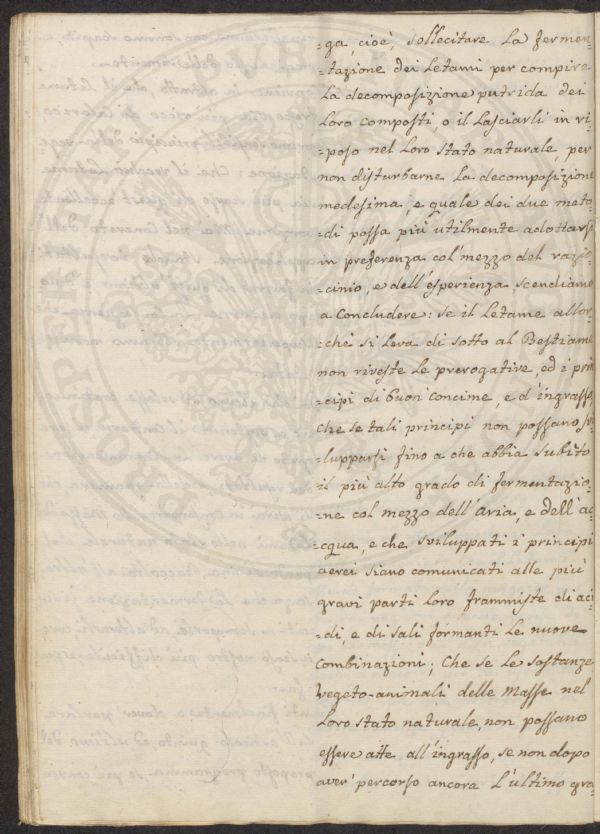 =ga, cioè, sollecitare la fermen=
=tazione dei Letami per compire
la decomposizione putrida dei
loro composti, o il lasciarli in ri=
=poso nel loro stato naturale, per
non disturbarne la decomposizione
medesima, e quale dei due meto=
=di possa più utilmente adottarsi
in preferenza col' mezzo del razio=
=cinio, e dell'esperienza scendiamo
a concludere: se il Letame allor=
=chè si leva di sotto al Bestiame
non riveste le prerogative, ed i prin=
=cipi di buon concime, e d'ingrasso,
che se tali principi non possano svi=
=lupparsi fino a che abbia subito
il più alto grado di fermentazio=
=ne col mezzo dell'aria, e dell'ac=
=cqua, e che sviluppati i principi
aerei siano comunicati alle più
gravi parti loro frammiste di aci=
=di, e di sali formanti le nuove
combinazioni; Che se le sostanze
vegeto-animali delle masse nel
loro stato naturale, non possano
essere atte all'ingrasso, se non dopo
aver' percorso ancora l'ultimo gra=